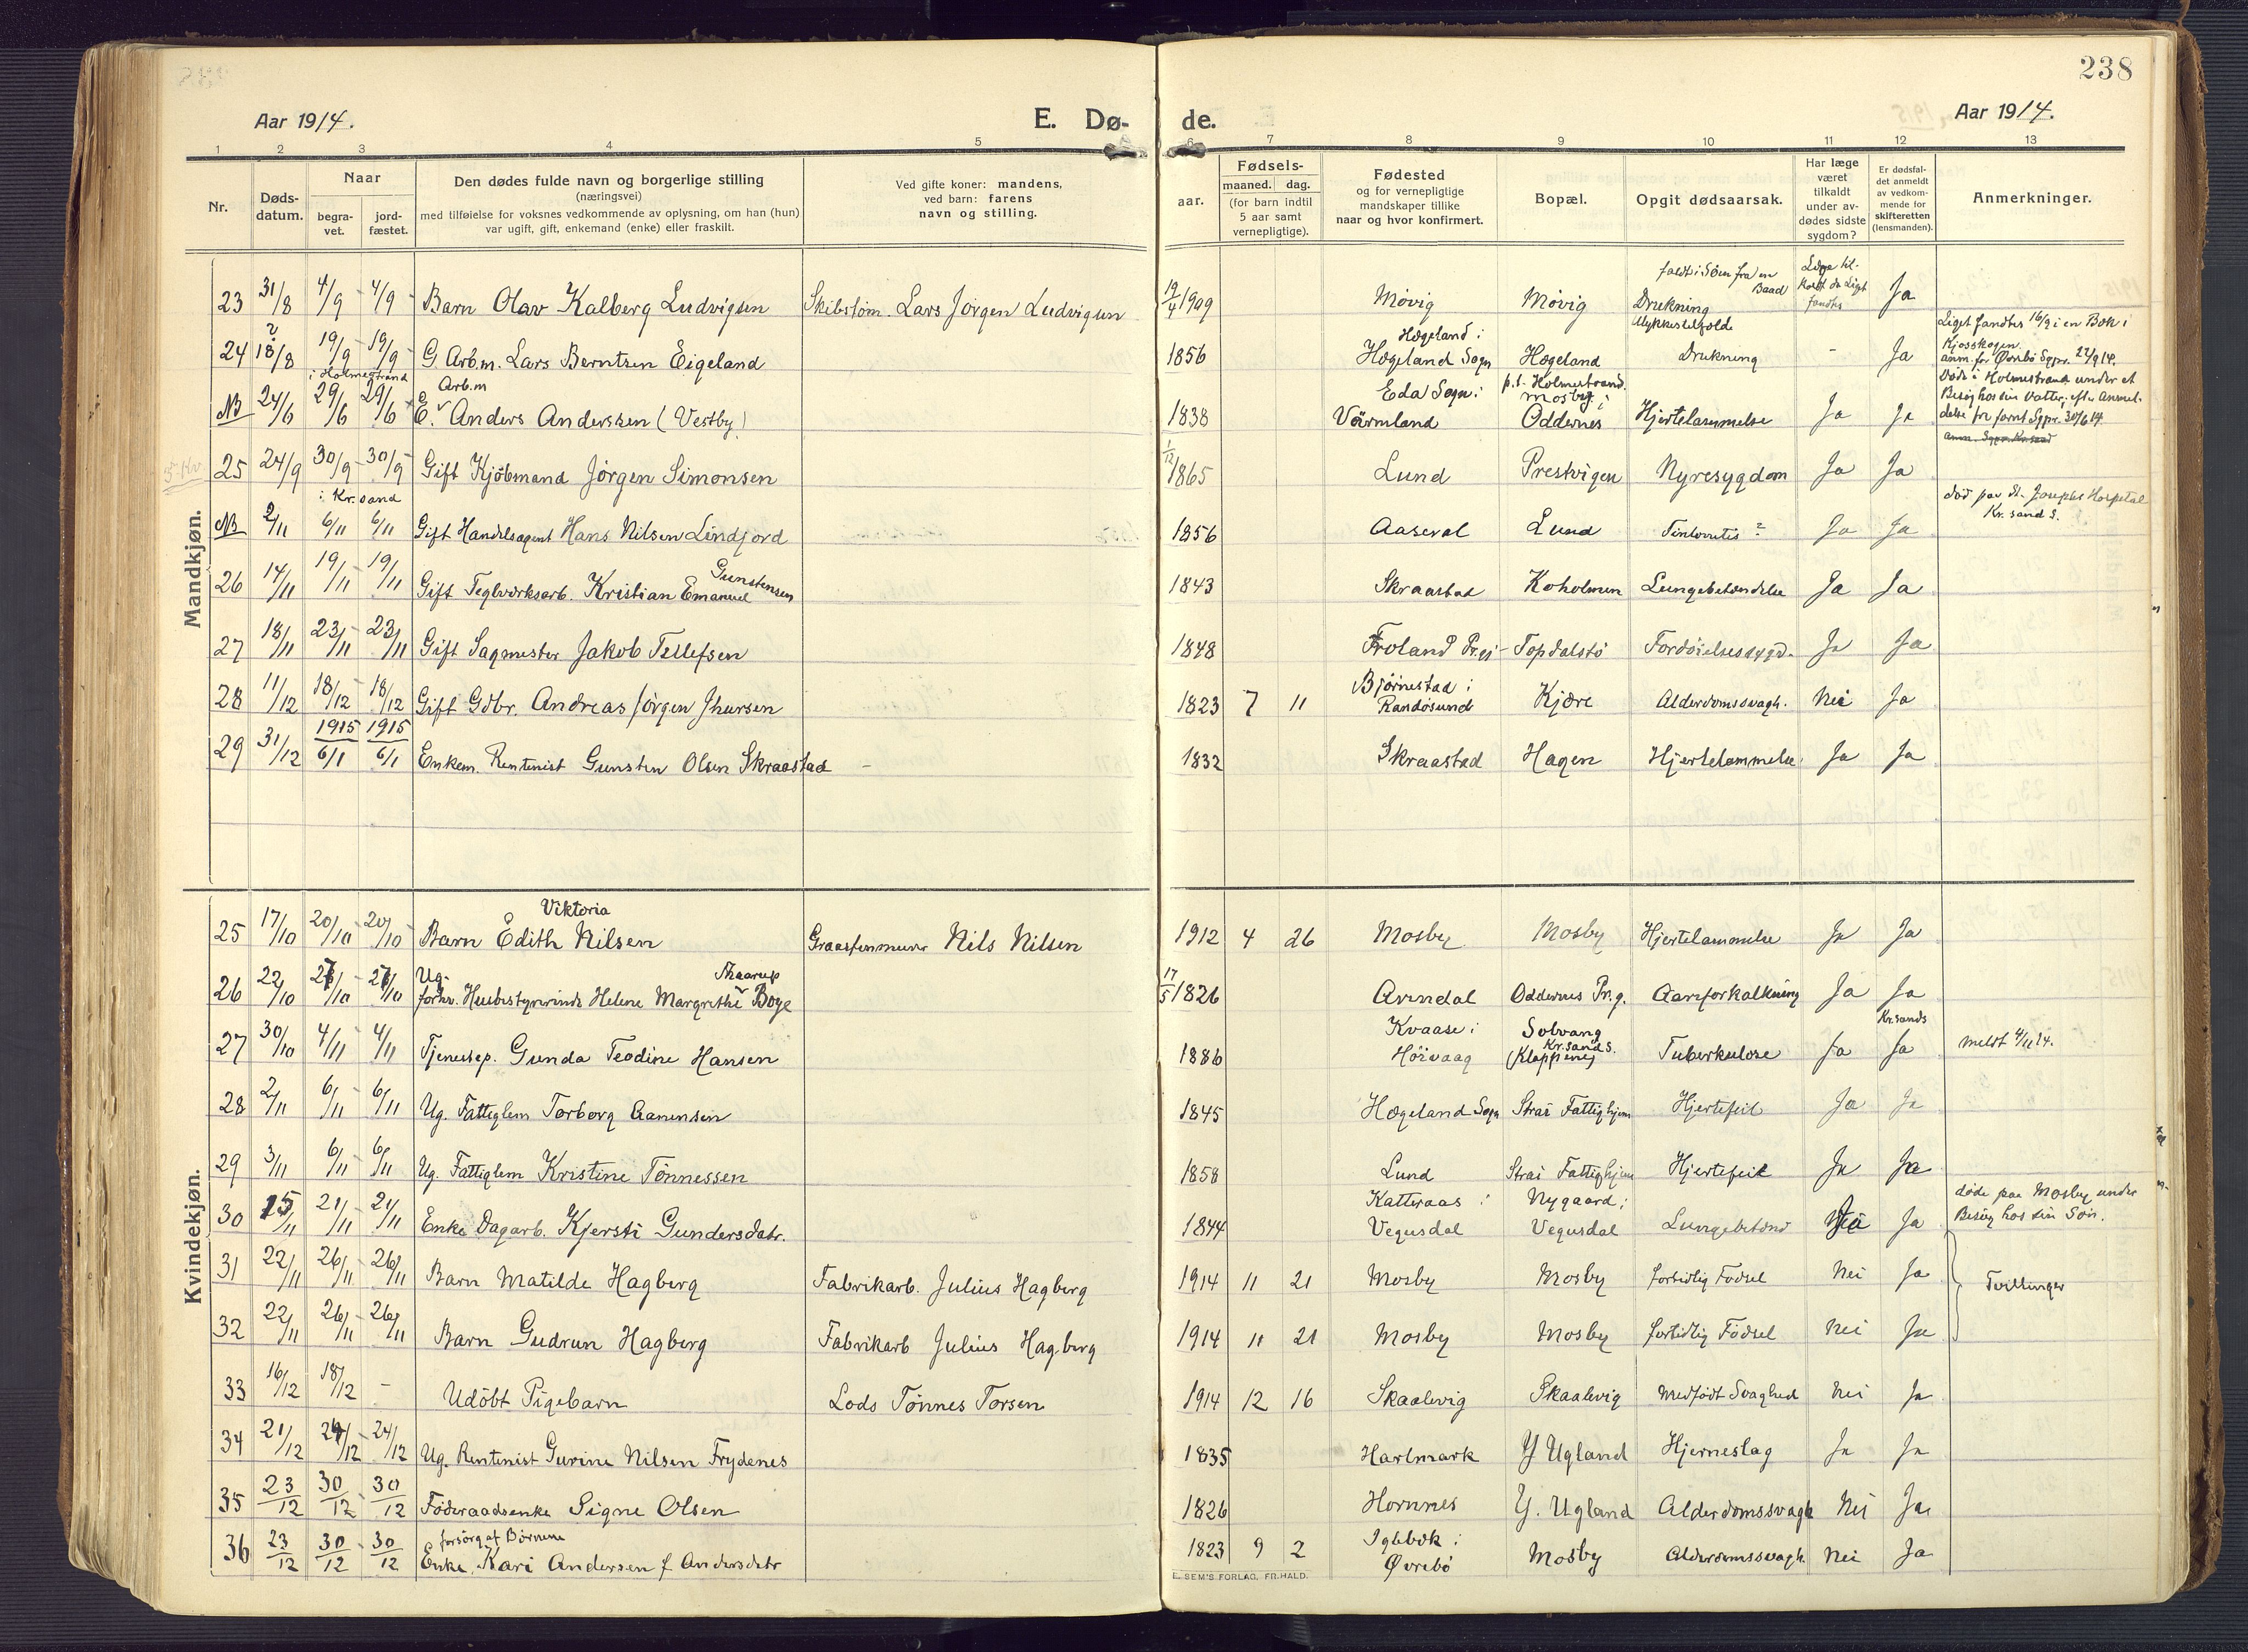 238
Aar 1914.
E. Dø-
de.
Aar 1914.
1 2 3 4 5 6 7 8 9 10 11 12 13
Nr.
Døds-
datum.
Naar
begra-
vet.
jord-
fæstet.
Den dødes fulde navn og borgerlige stilling
(næringsvei)
med tilføielse for voksnes vedkommende av oplysning, om han (hun)
var ugift, gift, enkemand (enke) eller fraskilt.
Ved gifte koner: mandens,
ved barn: farens
navn og stilling.
Fødsels-
aar.
maaned. dag.
(for barn indtil
5 aar samt
vernepligtige).
Fødested
og for vernepligtige
mandskaper tillike
naar og hvor konfirmert.
Bopæl.
Opgit dødsaarsak.
Har læge
været
tilkaldt
under av-
dødes sidste
sygdom?
Er dødsfal-
det anmeldt
av vedkom-
mende for
skifteretten
(lensmanden).
Anmerkninger.
Mandkjøn.
23 31/8 4/9 - 4/9 - Barn Olav Kalberg Ludvigsen Skibstøm. Lars Jørgen Ludvigsen 19/4 1909 Møvig Møvig faldt i Søen fra en Baad Drukning Ja
24 18/8 19/9 - 19/9 - G. Arb.m. Lars Berntsen Eigeland 1856 Hægeland i Hægeland Sogn Hægeland Ulykkestilfælde Drukning - Ja Liget fandtes 16/9 i en Bæk i Kjosskogen. anm. for Øvrebø Sgpr. 22/9 14.
NB 24/6 i Holmestrand 29/6 29/6 E. Arb.m Anders Anderssen (Vestby) 1838 Eda Sogn i Värmland p.t. Holmestrand. Mosby i Oddernes Hjertelammelse Ja Ja Døde i Holmestrand under et Besøg hos sin Datter, efter Anmeldelse fra Sgpr. 30/6 14.
25 24/9 30/9 - 30/9 Gift Kjøbmand Jørgen Simonsen 1/12 1865 Lund Prestvigen Nyresygdom Ja Ja
NB 2/11 i Kr.sand 6/11 6/11 Gift Handelsagent Hans Nilsen Lindjord 1856 Aaseral Lund Ja Ja død paa St. Josephs Hospital Kr.sand S.
26 14/11 19/11 - 19/11 Gift Teglværksarb. Kristian Emanuel Gunstensen 1843 Skraastad Koholmen Lungebetændelse Ja Ja
27 18/11 23/11 - 23/11 Gift Sagmester Jakob Tellefsen 1848 Froland Pr.gj. Topdalsø Fordøielsessygd. Ja Ja
28 11/12 18/12 - 18/12 Gift Gdbr. Andreas Jørgen Jhursen 1823 7 11 Bjørnestad i Randøsund Kjære Alderdomssvagh. Nei Ja
29 31/12 1915 6/1 1915 6/1 Enkem. Rentenist Gunsten Olsen Skraastad - 1832 Skraastad Hagen Hjertelammelse Ja Ja
Kvindekjøn.
25 17/10 20/10 - 20/10 Barn Edith Viktoria Nilsen Graastenmurer Nils Nilsen 1912 4 26 Mosby Mosby Hjertelammelse Ja Ja
26 22/10 27/10 - 27/10 Ug. forhv. Husbestyrerinde Helene Margrethe Skaarup Boye 17/5 1826 Arendal Oddernes Pr.g. Aareforkalkning Ja Ja
27 30/10 4/11 - 4/11 Tjenestep. Gunda Teodine Hansen 1886 Kvaase i Høivaag Solvang Kr.sand S. Tuberkulose Ja Kr.sands Ja meldt 4/11 14.
28 2/11 6/11 - 6/11 Ug. Fattiglem Torborg Aanensen 1845 Hægeland Sogn Strai Fattighjem Hjertefeil Ja Ja
29 3/11 6/11 - 6/11 Ug. Fattiglem Kristine Tønnessen 1858 Lund Strai Fattighjem Hjertefeil Ja Ja
30 15/11 21/11 - 21/11 Enke Dagarb. Kjersti Gundersdatr. 1844 Katteraas i Vegusdal Nygaard i Vegusdal Lungebetænd Ja døde paa Mosby under Besøg hos sin Søn.
31 22/11 26/11 - 26/11 Barn Matilde Hagberg Fabrikarb. Julius Hagberg 1914 11 21 Mosby Mosby fortidlig Fødsel Nei Ja Tvillinger
32 22/11 26/11 - 26/11 Barn Gudrun Hagberg Fabrikarb Julius Hagberg 1914 11 21 Mosby Mosby fortidlig Fødsel Nei Ja
33 16/12 18/12 - Udøbt Pigebarn Lods Tønnes Torsen 1914 12 16 Skaalevig Skaalevig Medfødt Svaghed Nei Ja
34 21/12 24/12 - 24/12 Ug. Rentenist Gurine Nilsen Frydenes 1835 Hartmark Y Ugland Hjerneslag Ja Ja
35 23/12 30/12 - 30/12 Føderaadsenke Signe Olsen 1826 Hornnes Y. Ugland Alderdomssvagh Nei Ja
36 23/12 30/12 - 30/12 forsørg. af Børnene Enke, Kari Andersen f. Andersdatr 1823 9 2 Iglebæk i Øvrebø Mosby Alderdomssvagh. Nei Ja
E. SEM'S FORLAG, FR.HALD.